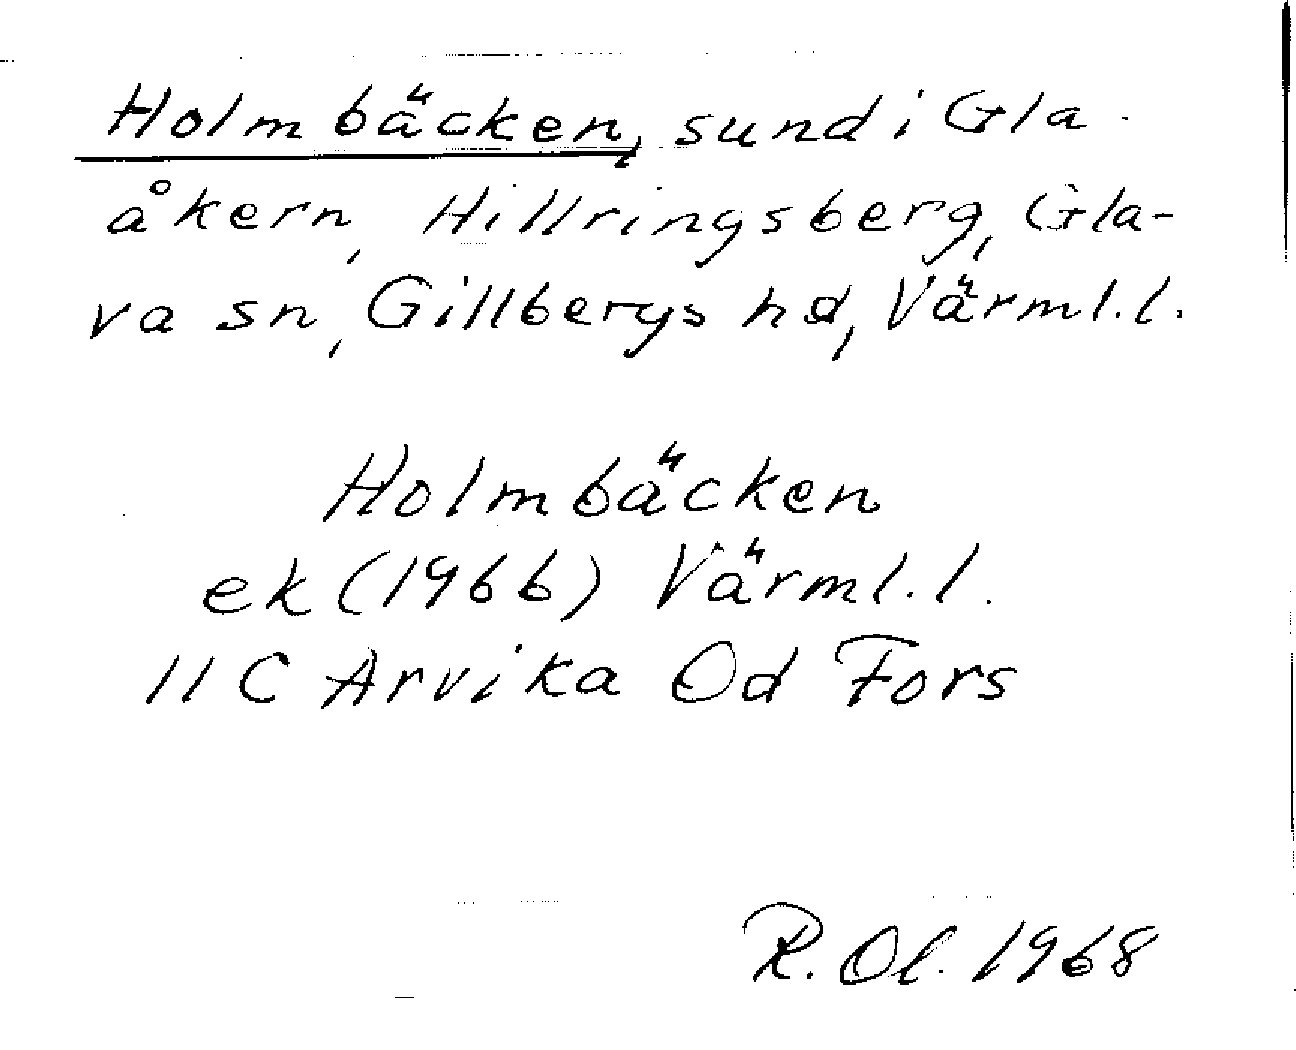 Holmbäcken, sund i Gla-
åkern, Hillringsberg, Gla-
va sn, Gillbergs hd, Värml.l.
Holmbäcken
ek (1966) Värml.l.
11 C Arvika Od Fors
R. Ol. 1968